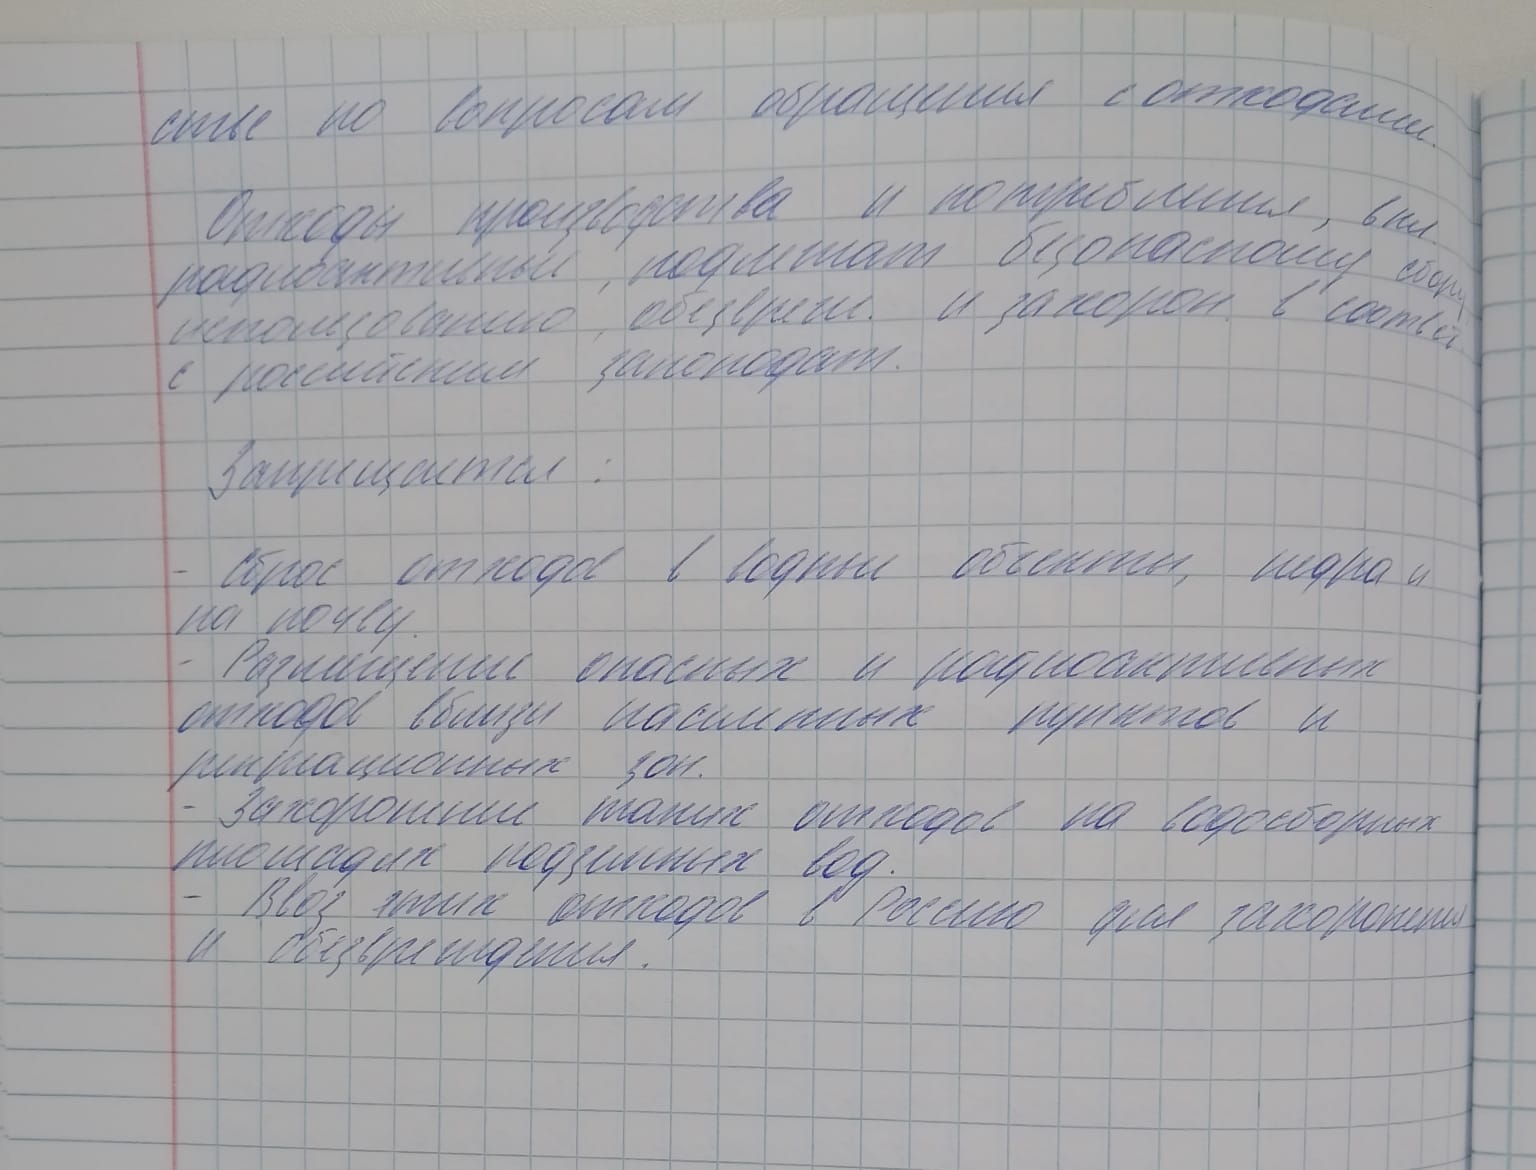 стве по вопросам обращения с отходами.
Отходы производства и потребления, вкл.
радиоактивные, подлежат безопасному сбору,
использованию, обезвреж. и захорон. в соотвт
с российским законодат.
Запрещается:
- Сброс отходов в водные объекты, недра и
на почву.
- Размещение опасных и радиоактивных
отходов вблизи населенных пунктов и
рекреационных зон.
- Захоронение таких отходов на водосборных
площадях подземных вод.
- Ввоз этих отходов в Россию для захоронения
и обезвреждения.